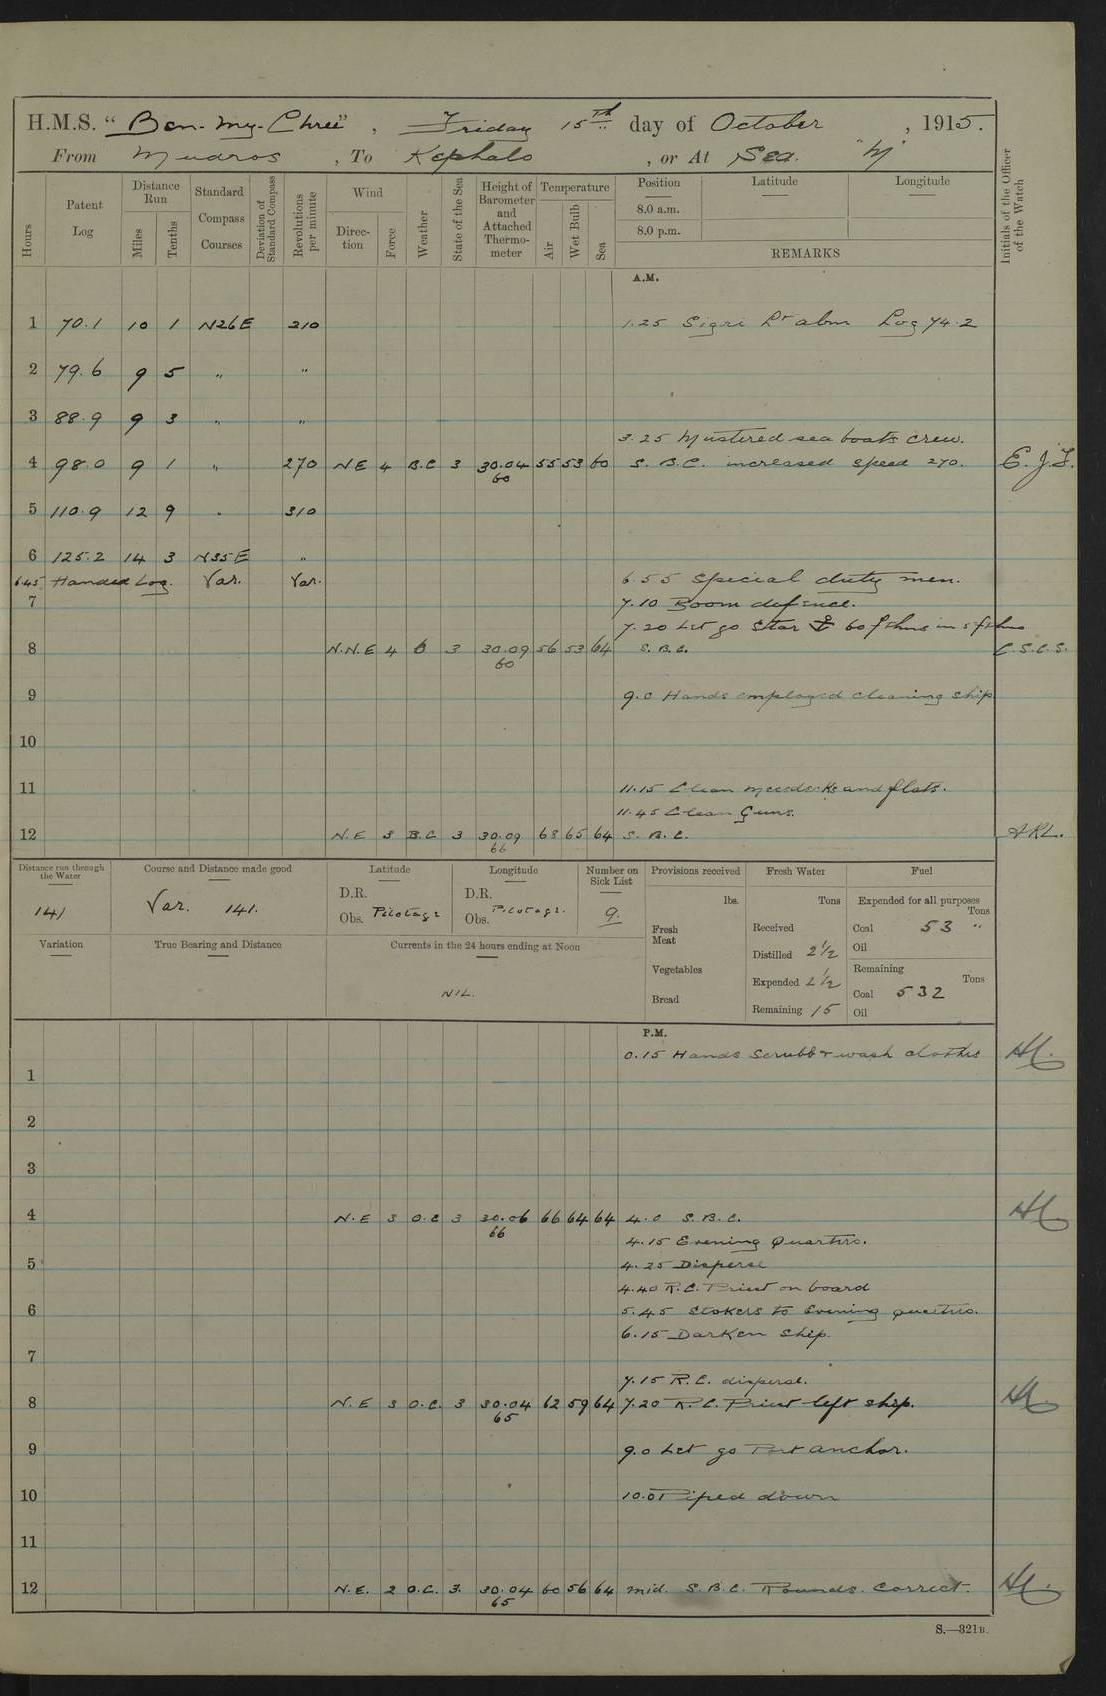 H.M.S. "Ben-my-Chree", Friday 15th day of October, 1915.
From Mudros, To Kephalo, or At Sea. "M"
Hours
Patent Log
Distance Run
Miles
Tenths
Standard Compass Courses
Deviation of Standard Compass
Revolutions per minute
Wind
Direction
Force
Weather
State of the Sea
Height of Barometer and Attached Thermometer
Temperature
Air
Wet Bulb
Sea
Position
Latitude
Longitude
8.0 a.m.
8.0 p.m.
REMARKS
Initials of the Officer of the Watch
A.M.
1 70.1 10 1 N26E 210 1.25 Sigri Lt abm Log 74.2
2 79.6 9 5 " "
3 88.9 9 3 " "
3.25 Mustered sea boats crew.
4 98.0 9 1 " 270 NE 4 B.C 3 30.04 55 53 60 S. B.C. increased speed 270. E.J.F.
60
5 110.9 12 9 " 310
6 125.2 14 3 N35E "
645 Handed Log. Var. Var. 6.55 Special duty men.
7 7.10 Boom defence.
7.20 Let go Star ⚓ 60 fthms in 5 fthms
8 N.N.E 4 b 3 30.09 56 53 64 S.B.C. C.S.C.S.
60
9 9.0 Hands employed cleaning ship
10
11 11.15 Clean messdecks and flats.
11.45 Clean Guns.
12 N.E 3 B.C 3 30.09 68 65 64 S. B.C. ARL.
66
Distance run through the Water
141
Course and Distance made good
Var. 141.
Latitude
D.R.
Obs. Pilotage
Longitude
D.R.
Obs. Pilotage.
Number on Sick List
9.
Provisions received
lbs.
Fresh Meat
Vegetables
Bread
Fresh Water
Tons
Received
Distilled 2½
Expended 2½
Remaining 15
Fuel
Expended for all purposes
Tons
Coal 53 "
Oil
Remaining
Tons
Coal 532
Oil
Variation
True Bearing and Distance
Currents in the 24 hours ending at Noon
NIL.
P.M.
0.15 Hands Scrubb & wash clothes
1
2
3
4 N.E 3 O.C 3 30.06 66 64 64 4.0 S.B.C.
66
4.15 Evening Quarters.
5 4.25 Disperse
4.40 R.C. Priest on board
6 5.45 Stokers to Evening quarters.
6.15 Darken Ship.
7
7.15 R.C. disperse.
8 N.E 3 O.C. 3 30.04 62 59 64 7.20 R.C. Priest left ship.
65
9 9.0 Let go Port anchor.
10 10.0 Piped down
11
12 N.E. 2 O.C. 3. 30.04 60 56 64 mid. S.B.C. Rounds. Correct.
65
S.—321B.